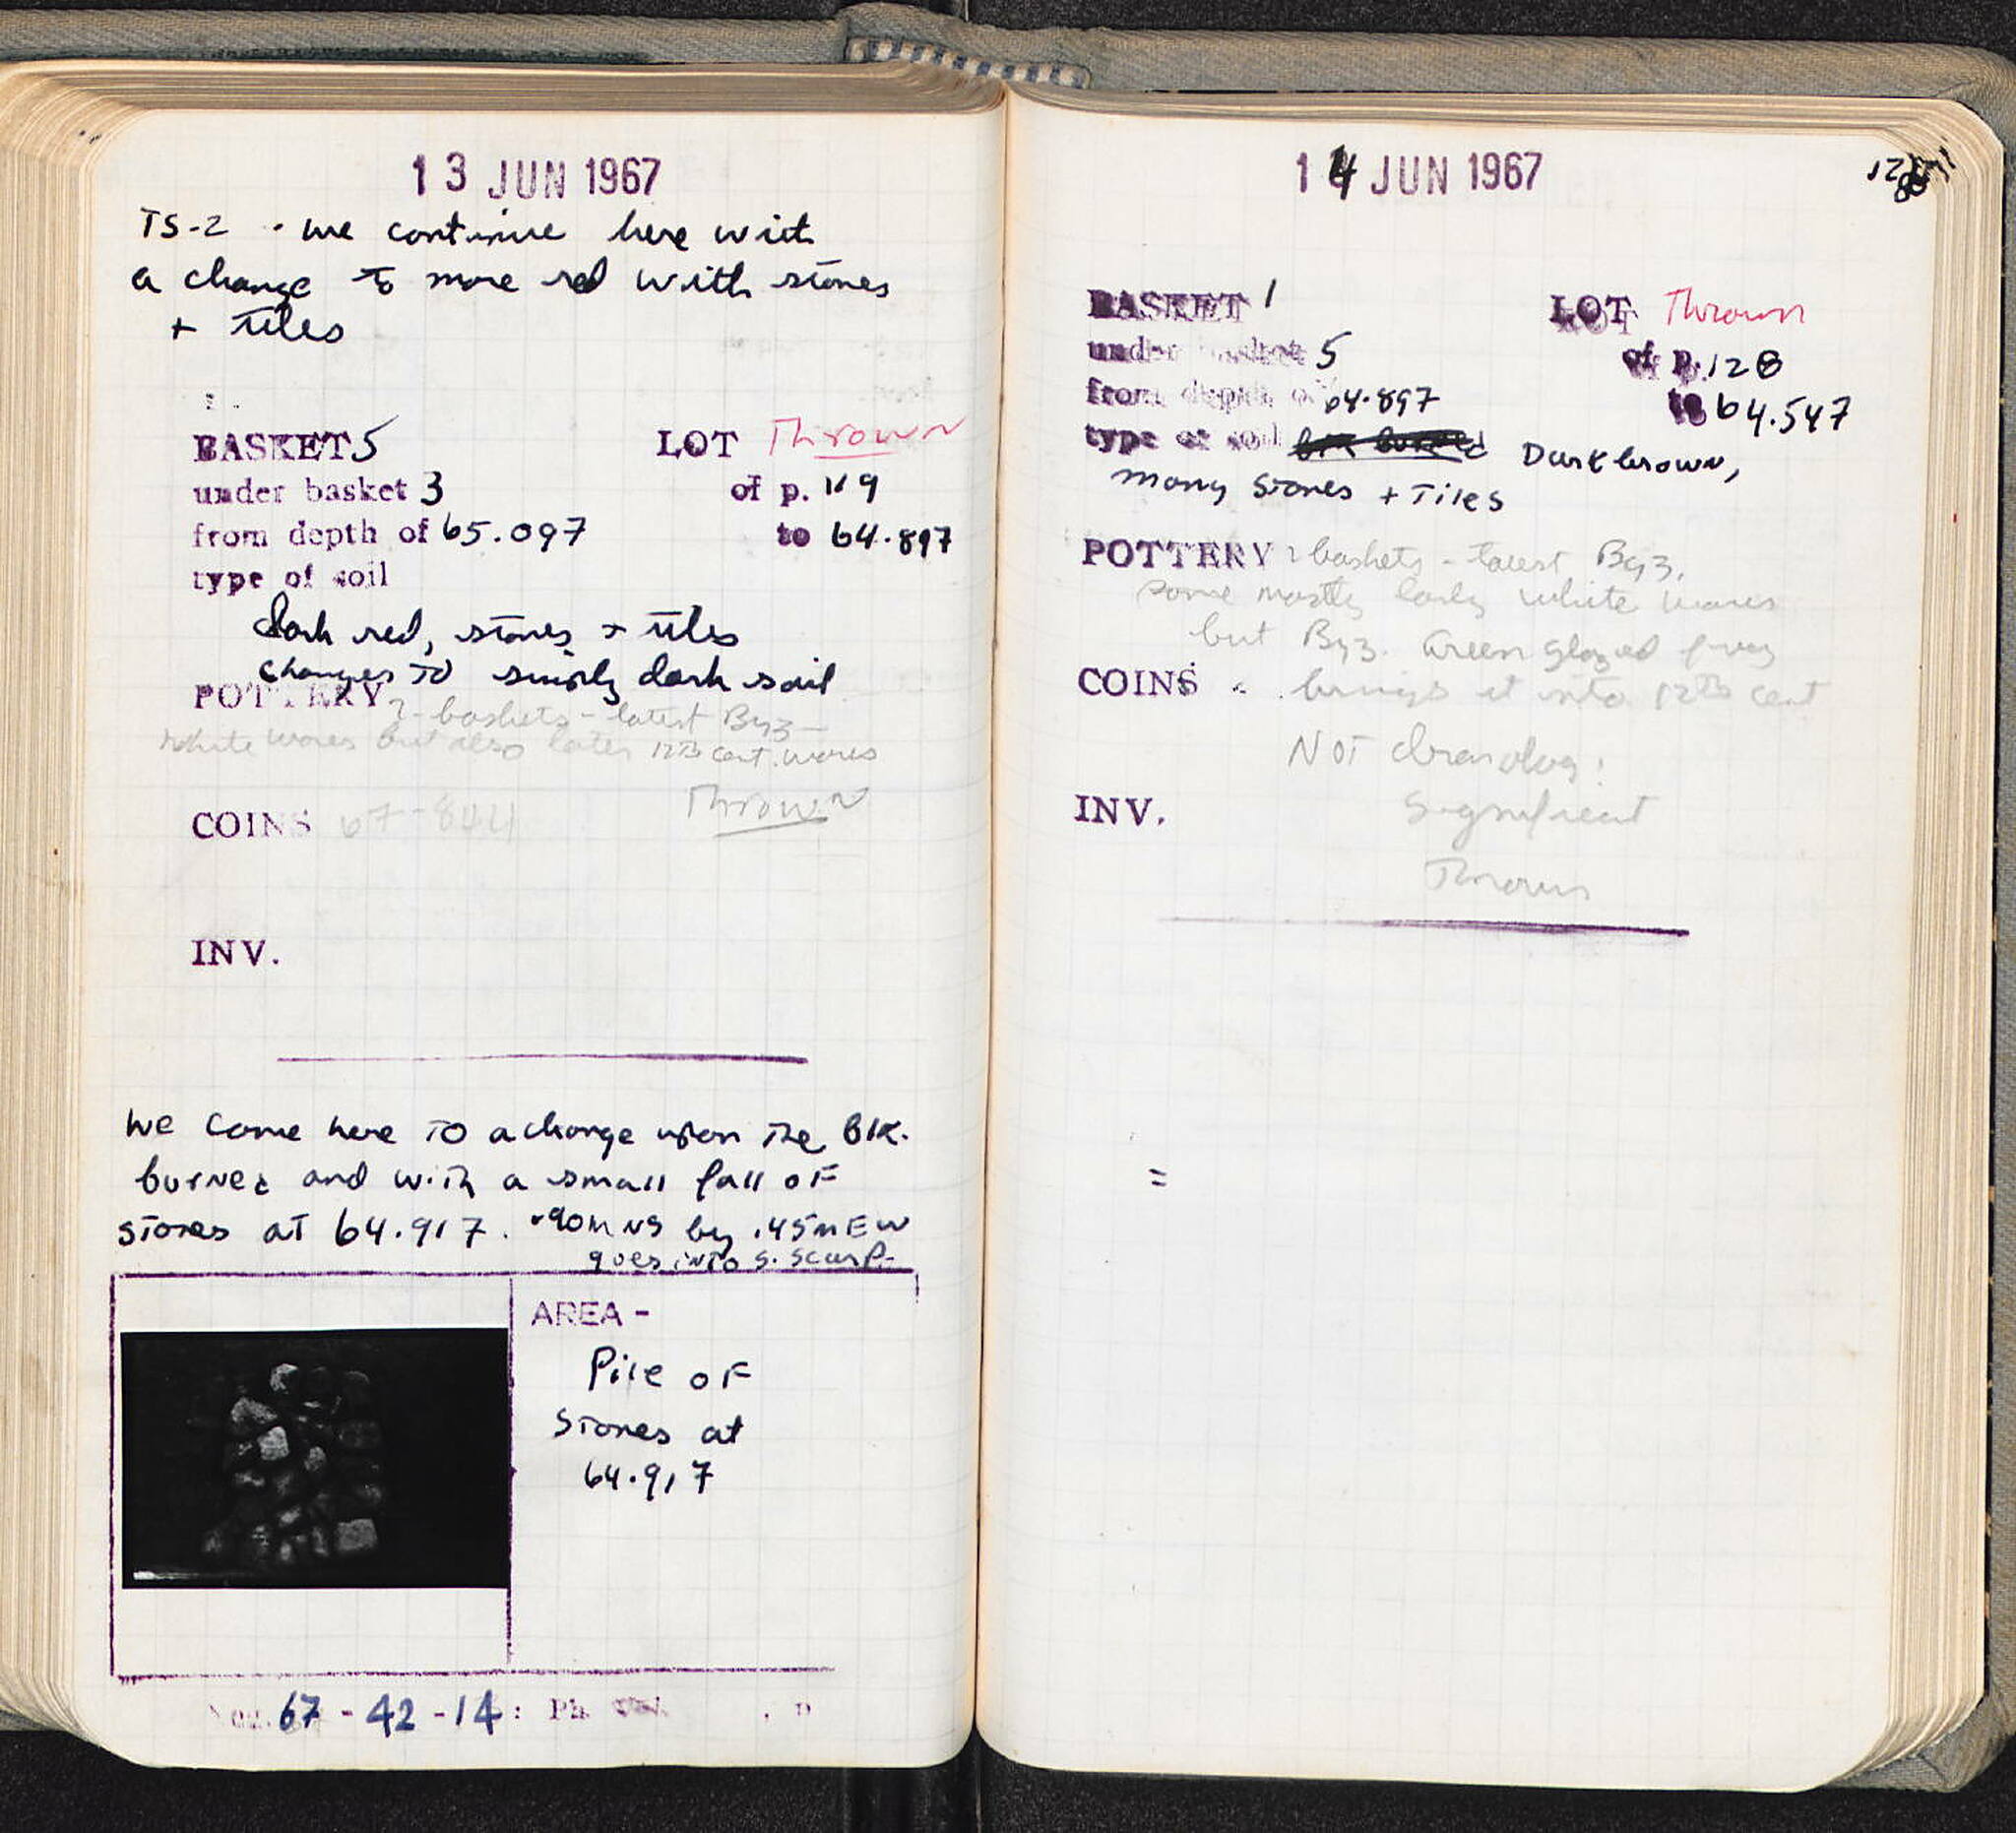 13 JUN 1967
TS-2 . we continue here with
a change to more red with stones
+ tiles
BASKET 5 LOT Thrown
under basket 3 of p. 119
from depth of 65.097 to 64.897
type of soil
dark red, stones + tiles
changes to simply dark soil
POTTERY 2 - baskets - latest Byz -
White wares but also later 12th cent. wares
Thrown
COINS 67-844
INV.
We come here to a change upon the blk.
burned and with a small fall of
stones at 64.917. .90m NS by .45m EW
goes into S. Scarp.
AREA -
Pile of
Stones at
64.917
Neg. 67 - 42 - 14 : Ph.
14 JUN 1967
BASKET 1 LOT Thrown
under basket 5 of p. 128
from depth of 64.897 to 64.547
type of soil blk burned Dark brown,
many stones + tiles
POTTERY 2 baskets - latest Byz.
some mostly early white wares
but Byz. Green glazed
COINS brings it into 12th cent
Not chronolog.
Significant
INV.
Thrown
=